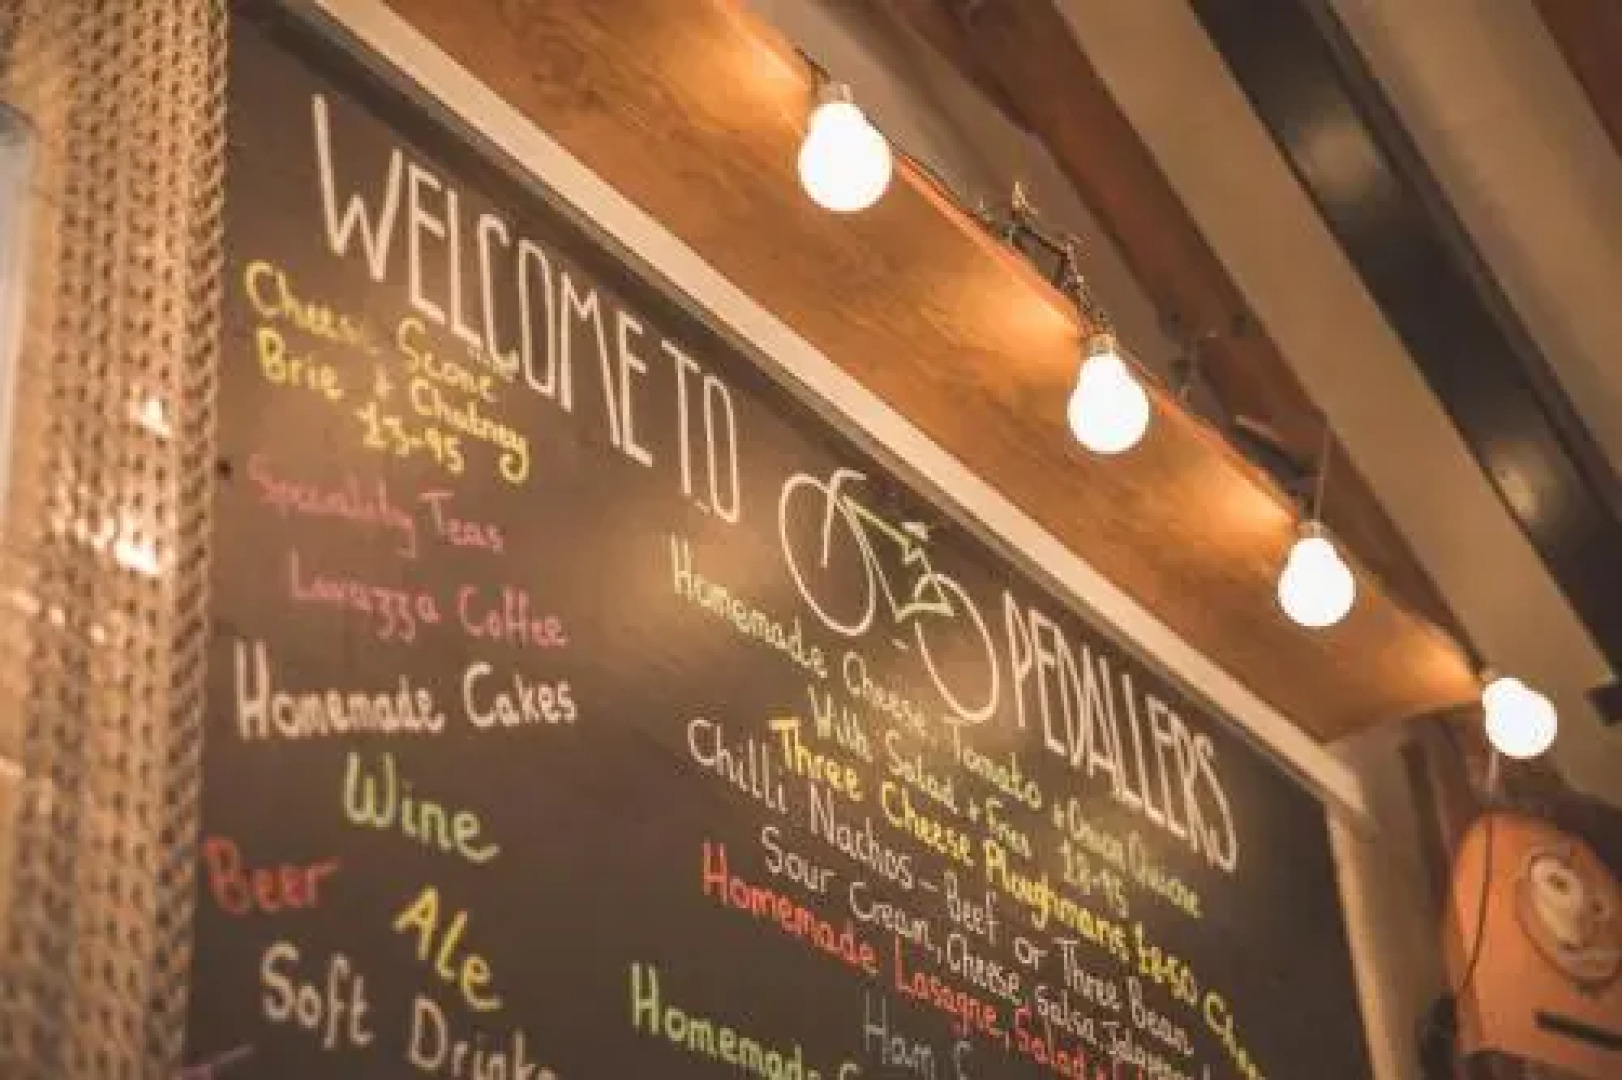 WELCOME TO
PEDALLERS
Cheese Scone
Brie + Chutney
£3.95
Speciality Teas
Lavazza Coffee
Homemade Cakes
Wine
Beer
Ale
Soft Drinks
Homemade Cheese, Tomato + Onion Quiche
With Salad + Fries £8.95
Three Cheese Ploughmans £8.50
Chilli Nachos - Beef or Three Bean
Sour Cream, Cheese, Salsa,
Homemade Lasagne, Salad +
Ham
Homemade